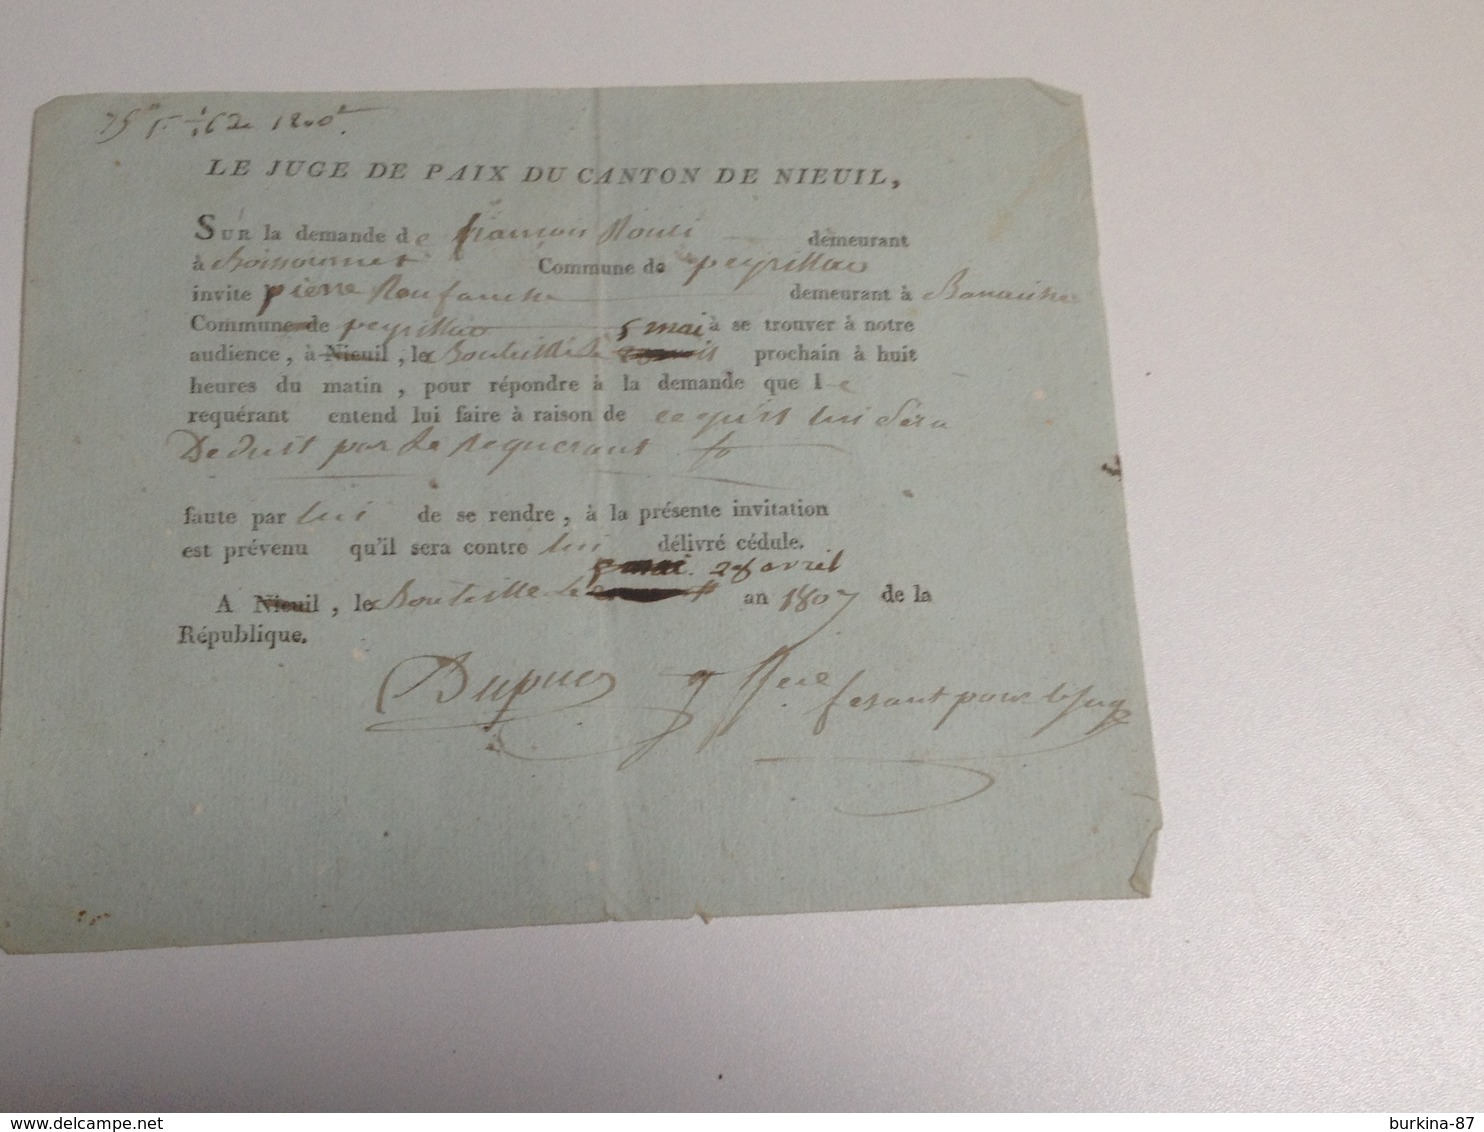 LE JUGE DE PAIX DU CANTON DE NIEUIL,
SUR la demande de françois demeurant
à Commune de peyrillac
invite pierre Roufanche demeurant à
Commune de peyrillac 5 mai à se trouver à notre
audience, à Nieuil, le Bouteille le prochain à huit
heures du matin, pour répondre à la demande que le
requérant entend lui faire à raison de ce qu'il lui Sera
Deduit par Le Requerant
faute par lui de se rendre, à la présente invitation
est prévenu qu'il sera contre lui délivré cédule.
5 mai. 28 avril
A Nieuil, le Bouteille le an 1807 de la
République.
Dupuy gffier fesant pour le Juge
burkina-87